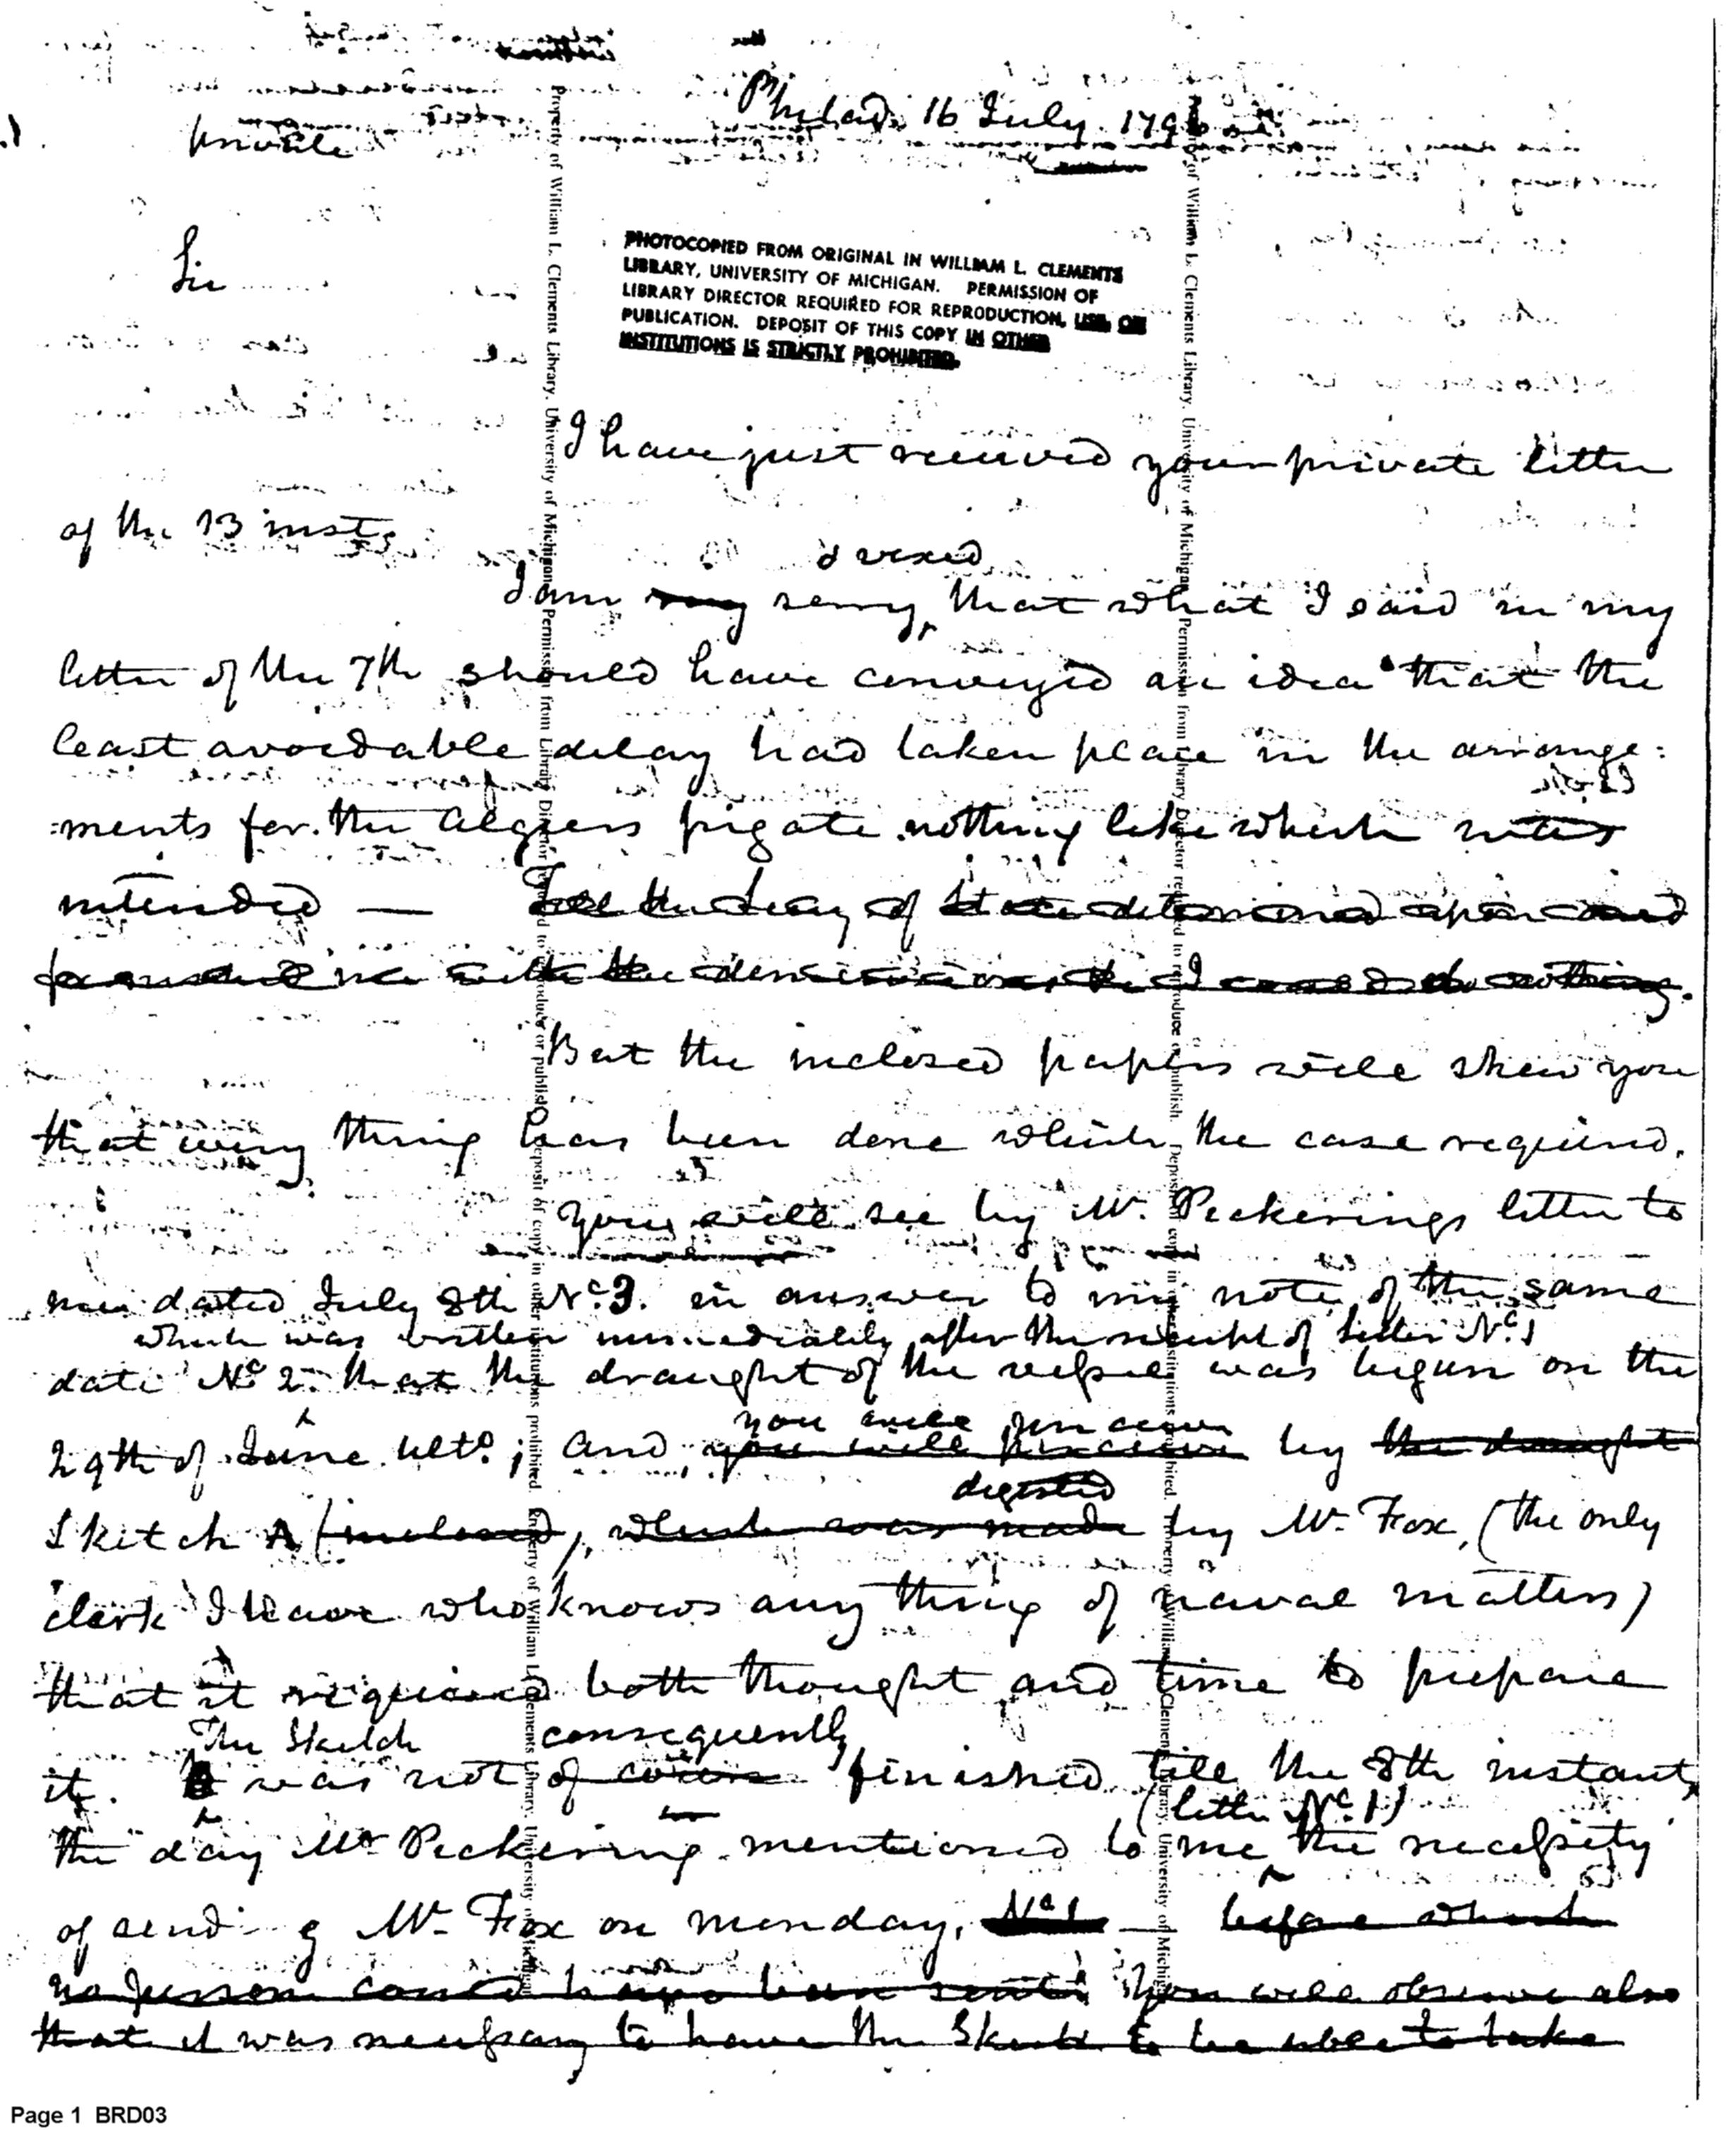 Philad. 16 July 1796
private
Sir
PHOTOCOPIED FROM ORIGINAL IN WILLIAM L. CLEMENTS
LIBRARY, UNIVERSITY OF MICHIGAN. PERMISSION OF
LIBRARY DIRECTOR REQUIRED FOR REPRODUCTION, USE, OR
PUBLICATION. DEPOSIT OF THIS COPY IN OTHER
INSTITUTIONS IS STRICTLY PROHIBITED.
I have just received your private letter
of the 13 inst.
& vexed
I am very sorry, that what I said in my
letter of the 7th should have conveyed an idea that the
least avoidable delay had taken place in the arrange:
:ments for the Algiers frigate nothing like which was
intended — Till the Secy of State determined upon and
furnished me with the dimensions I could do nothing.
But the inclosed papers will shew you
that every thing has been done which the case required.
You will see by Mr. Pickerings letter to
me dated July 8th No. 3. in answer to my note of the same
which was written immediately after the receipt of letter No. 1
date No. 2. that the draught of the vessel was begun on the
you will perceive
29th of June ulto.; and you will perceive by the draught
digested
Sketch A (inclosed), which was made by Mr. Fox, (the only
clerk I have who knows any thing of naval matters)
that it required both thought and time to prepare
The Sketch consequently
it. It was not of course finished till the 8th instant,
(letter No. 1)
the day Mr Pickering mentioned to me the necessity
of sending Mr. Fox on monday. No 1 — before which
no person could have been sent. You will observe also
that it was necessary to have the Sketch to be able to take
Property of William L. Clements Library, University of Michigan. Permission from Library Director required to reproduce or publish. Deposit of copy in other institutions prohibited.
Property of William L. Clements Library, University of Michigan
Property of William L. Clements Library, University of Michigan. Permission from Library Director required to reproduce or publish. Deposit of copy in other institutions prohibited.
Property of William L. Clements Library, University of Michigan
Page 1 BRD03